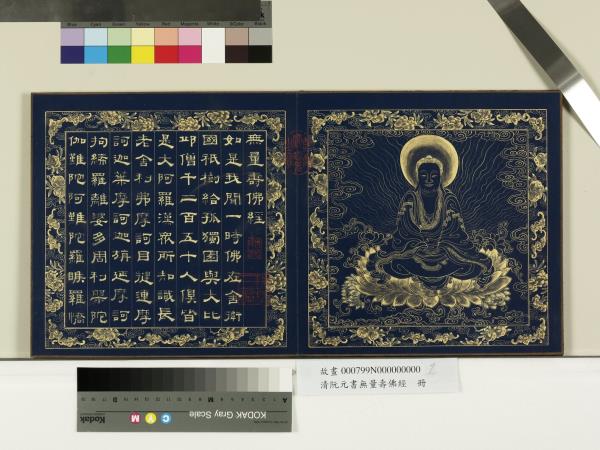 KODAK
Blue Cyan Green Yellow Red Magenta White 3/Color Black
無量壽佛經
如是我聞一時佛在舍衛
國祇樹給孤獨園與大比
邱僧千二百五十人俱皆
是大阿羅漢眾所知識長
老舍利弗摩訶目揵連摩
訶迦葉摩訶迦旃延摩訶
拘絺羅離婆多周利槃陀
伽難陀阿難陀羅睺羅憍
故畫 000799N000000000 2
清阮元書無量壽佛經 冊
KODAK Gray Scale
C Y M
Kodak